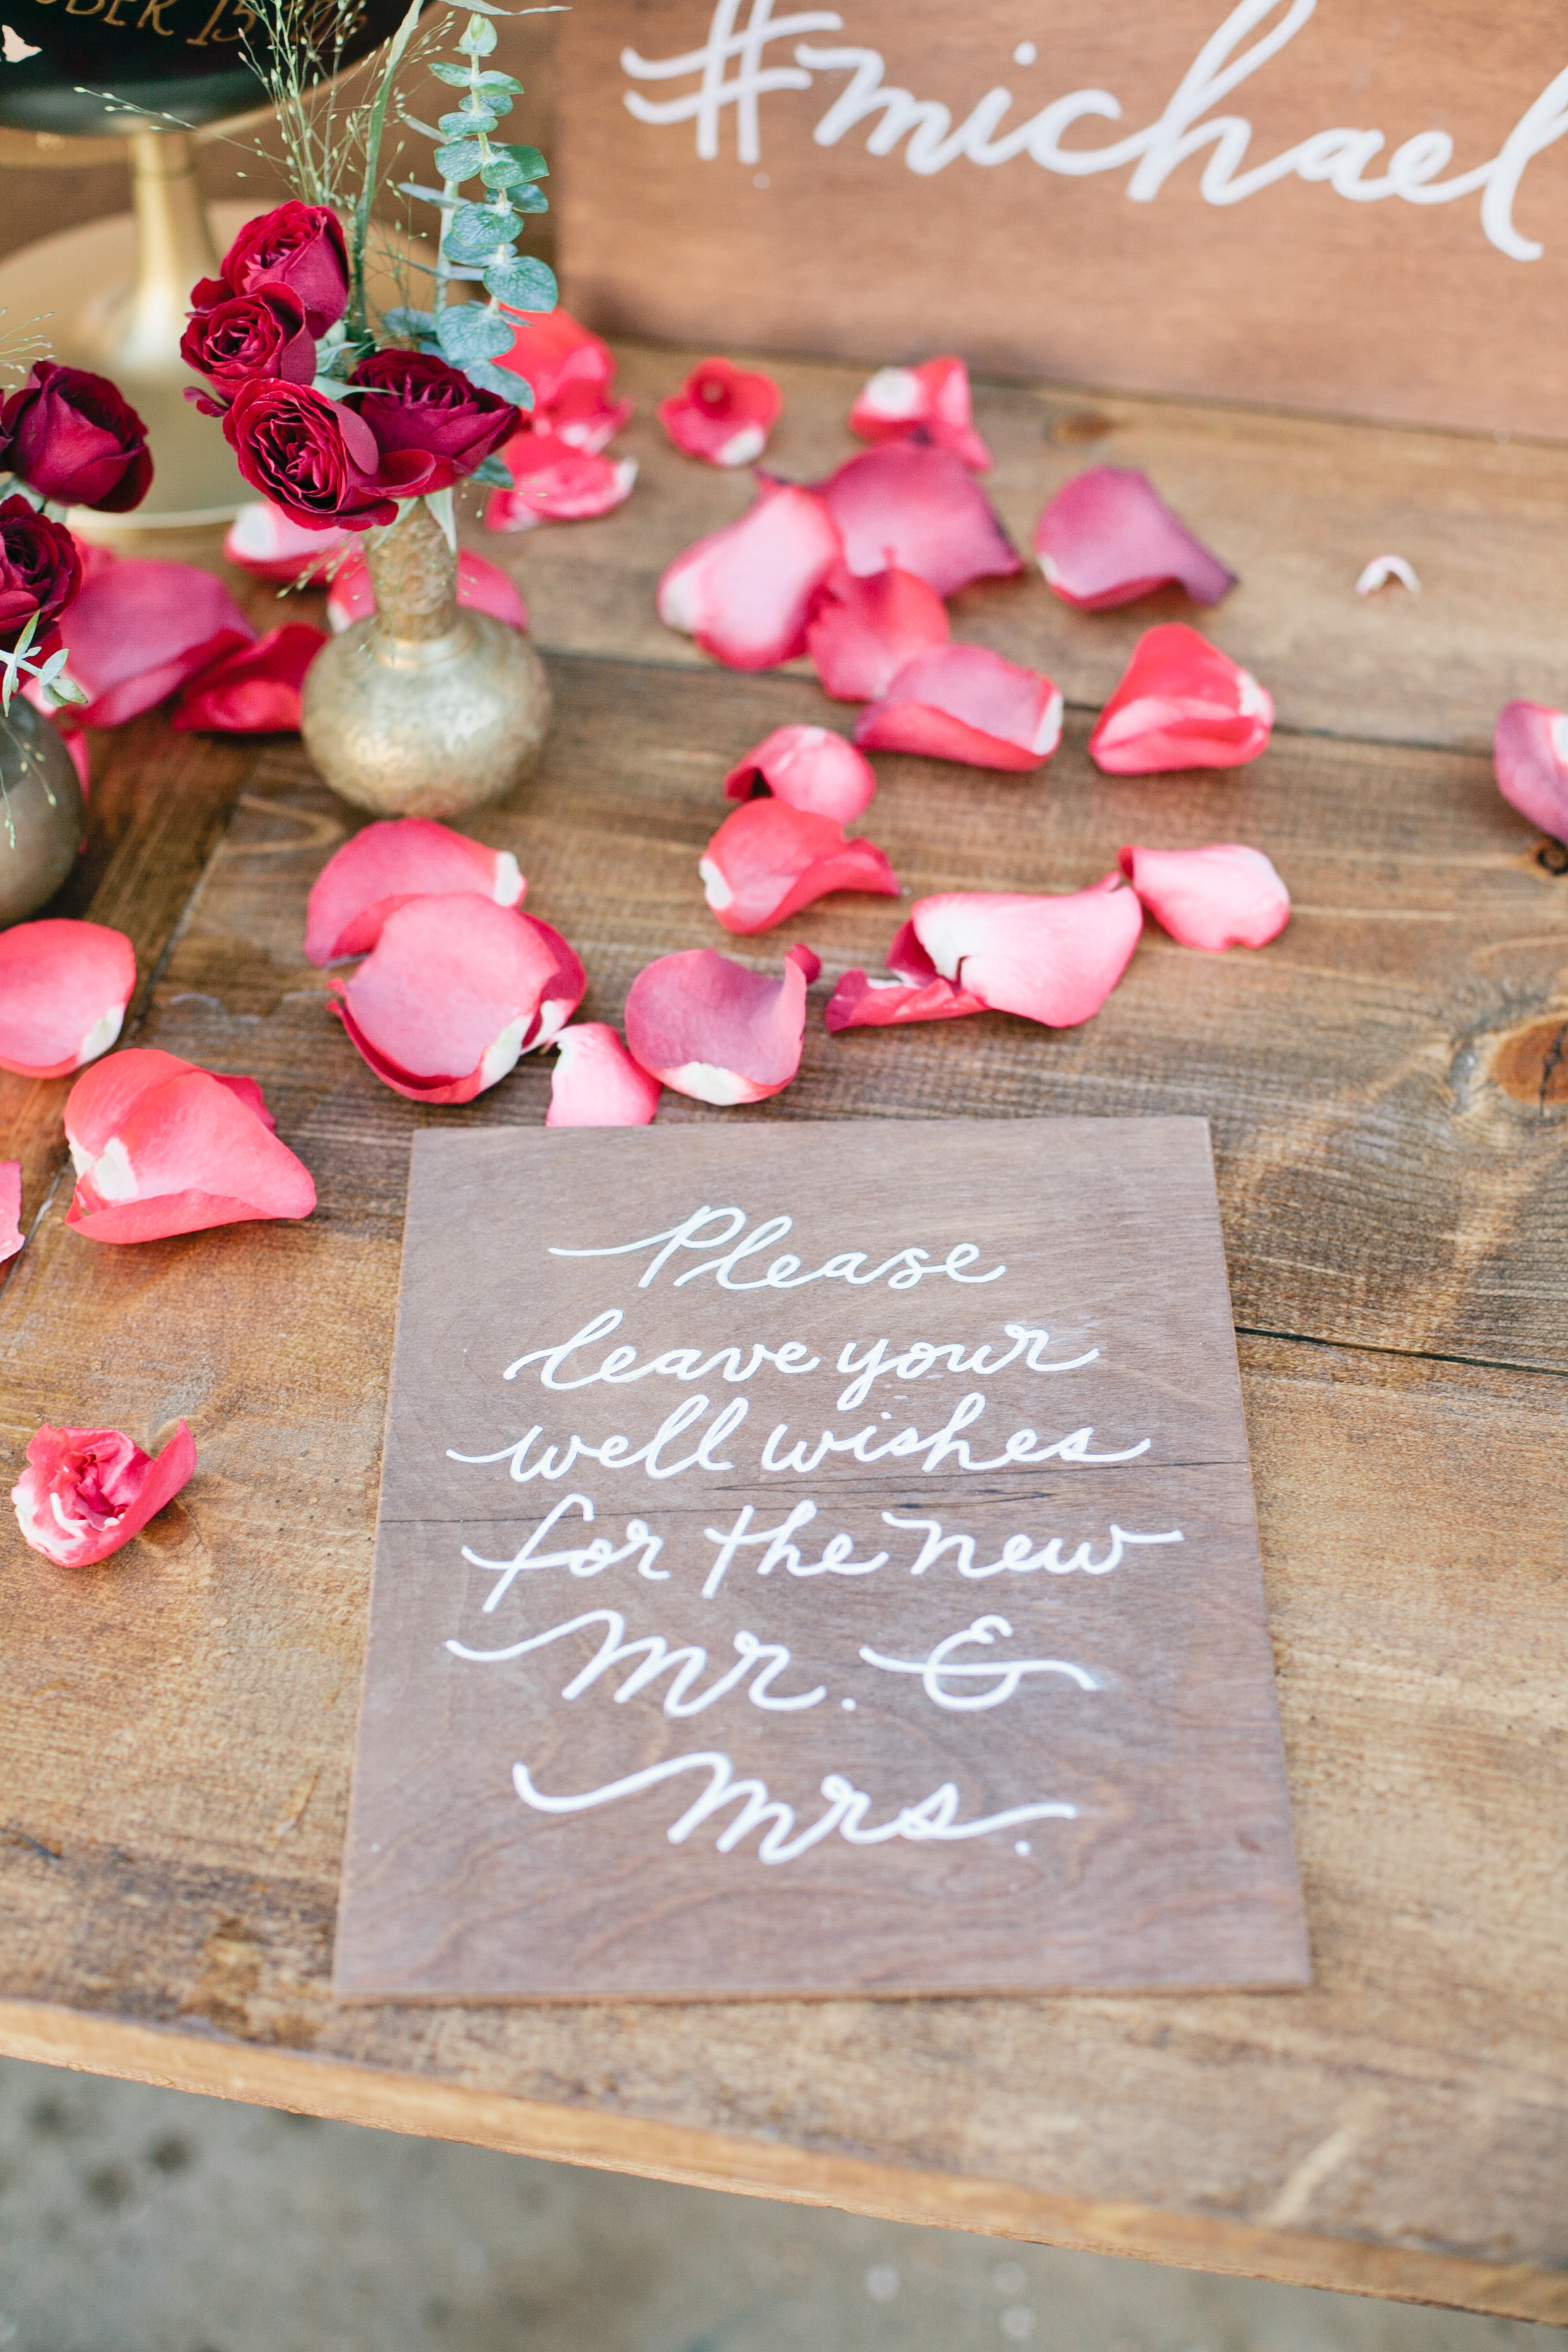 15
#michael
Please
leave your
well wishes
for the new
Mr. &
Mrs.